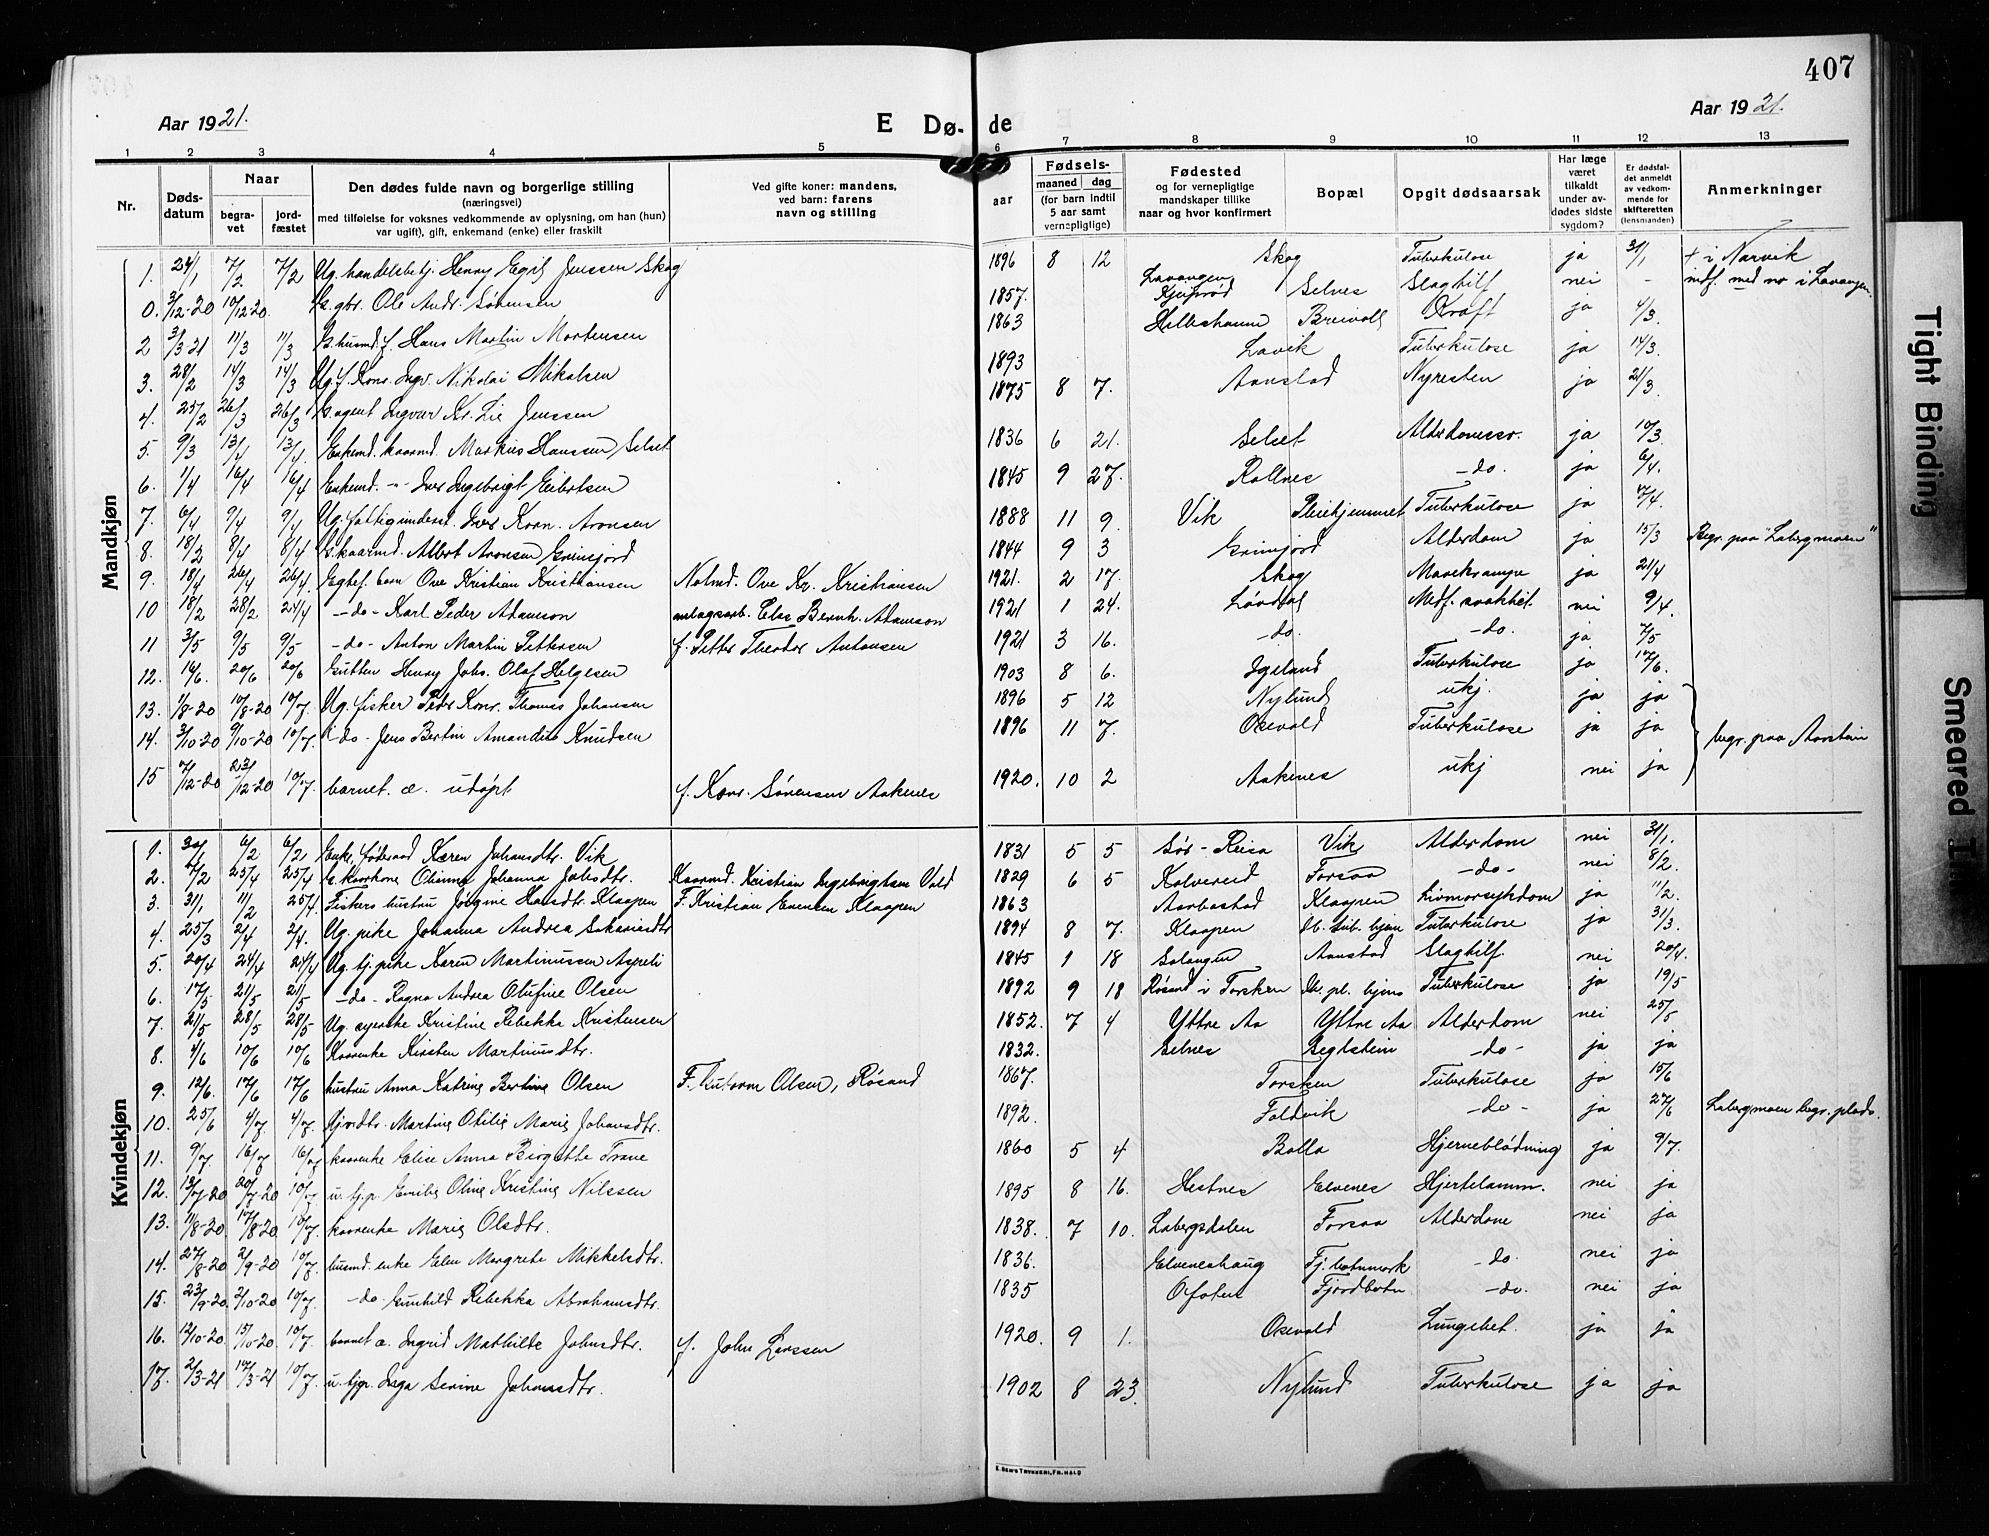 407
Aar 1921.
E Dø-
de
Aar 1921.
1 2 3 4 5 6 7 8 9 10 11 12 13
Nr.
Døds-
datum
Naar
begra-
vet
jord-
fæstet
Den dødes fulde navn og borgerlige stilling
(næringsvei)
med tilføielse for voksnes vedkommende av oplysning, om han (hun)
var ugift), gift, enkemand (enke) eller fraskilt
Ved gifte koner: mandens,
ved barn: farens
navn og stilling
Fødsels-
aar
maaned dag
(for barn indtil
5 aar samt
vernepligtige)
Fødested
og for vernepligtige
mandskaper tillike
naar og hvor konfirmert
Bopæl
Opgit dødsaarsak
Har læge
været
tilkaldt
under av-
dødes sidste
sygdom?
Er dødsfal-
det anmeldt
av vedkom-
mende for
skifteretten
(lensmanden)
Anmerkninger
Mandkjøn
1. 24/1 7/2 7/2 Ug. handelsbetj. Henry Egil Jenssen Skog 1896 8 12 Skog Tuberkulose ja 31/1 + i Narvik
0. 3/12-20 10/12-20. G. gbr. Ole Andr. Sørensen 1857. Lavangen Selnes Slagtilf nei - indf. med no i Lavangen.
2 3/3-21 11/3 11/3 G. husmd. f. Hans Martin Mortensen 1863 Breivoll Kræft ja 4/3.
3. 28/2 14/3 14/3 Ug. f. Konr. Ingv. Nikolai Mikalsen 1893 Lavik Tuberkulose ja 14/3.
4. 25/2 26/3 26/3 G. agent Ingvar Kr. Lie Jenssen 1875 8 7. Aanstad Nyresten ja 21/3.
5. 9/3 13/4 13/4. Enkemd. kaarmd. Markus Hanssen Selset 1836 6 21. Selset ja 10/3.
6. 1/4 16/4 16/4 Enkemd. -"- Iver Ingebrigt Eibertsen 1845 9 27. Rollnes -do. ja 6/4.
7. 6/4 9/4 9/4 Ug. fattigunderst. Iver Korn. Aronsen 1888 11 9. Vik Pleiehjemmet Tuberkulose ja 7/4.
8. 18/2 8/4 8/4 G. kaarmd. Albert Aronsen Grinsfjord 1844 9 3 Grinsfjord Alderdom ja 15/3 Begr. paa "Labergmoen"
9. 18/4 26/4 26/4 Egtef. barn Ove Kristian Kristiansen Nolmd. Ove Kr. Kristiansen 1921. 2 17. Skog Mavekrampe ja 21/4
10 18/2 28/2 24/4 -do- Karl Peder Adamson anlagsarb. Elas Bernh. Adamson 1921 1 24. Løvdal Medf. svakhet. nei 9/4.
11 3/5 9/5 9/5 -do- Anton Martin Pettersen f. Petter Theodor Antonsen 1921 3 16. -do. -do. ja 7/5
12. 14/6. 20/6 20/6 Gutten Henry Johs. Olaf Helgesen 1903 8 6. Igeland Tuberkulose ja 17/6.
13. 1/8-20 10/8-20 10/7. Ug. fisker Peder Konr. Thomas Johansen 1896 5 12 Nylund ukj. ja ja
14. 3/10-20 9/10-20 10/7. -do- Jens Bertin Amandus Knudsen 1896 11 7. Osevold Tuberkulose ja ja begr. paa Aarstein
15 7/12-20 23/12-20 10/7. barnet. æ. utdøpt f. Konr. Sørensen Aakenes 1920. 10 2 Aakenes ukj nei ja
Kvindekjøn
1. 30/1 6/2 6/2 Enke, føderaad Karen Johansdtr. Vik 1831 5 5 Sør-Reisa Vik Alderdom nei 31/1.
2. 7/2 25/4 25/4 G. kaarkone Olianna Johanna Johsdtr. Kaarmd. Kristian Ingebrigtsen Vold 1829 6 5 Kalvereid Forsaa -do- nei 8/2.
3. 31/1 11/2 25/4. Fiskers hustru Jørgine Hansdtr. Klaapen F. Kristian Evensen Klaapen 1863 Aarbostad Klaapen Livmorsykdom ja 11/2.
4. 25/3 2/4 2/4. Ug. pike Johanna Andrea Sakariasdtr 1894 8 7. Klaapen Tuberkulose ja 31/3.
5. 20/4 24/4 24/4 Ug. tj. pike Karen Martinussen Aspeli 1845 1 18 Salangen Aanstad Slagtilf. nei 20/4.
6. 17/5 21/5 21/5 -do- Ragna Andrea Olufine Olsen 1892 9 18 Røsand i Torsken Tuberkulose ja 19/5
7. 21/5 28/5 28/5 Ug. syerske Kristine Rebekka Kristensen 1852. 7 4 Yttre Aa Yttre Aa Alderdom nei 25/5
8. 4/6 10/6 10/6 Kaarenke Kirsten Martinusdtr. 1832. Selnes Seglstein -do- ja ja
9. 12/6. 17/6 17/6 hustru Anna Katrine Bertine Olsen F. Gutorm Olsen, Røsand 1867. Torsken Tuberkulose ja 15/6
10. 25/6 4/7 4/7. Gjordtr. Martine Otilie Marie Johansdtr. 1892. Foldvik -do- ja 27/6 Labergmoen begr. plads.
11. 9/7. 16/7 16/7 kaarenke Elise Anna Birgitte Trane 1860 5 4 Bolla Hjerneblødning ja 9/7.
12. 13/7-20 20/7-20 10/7 u. tj.p. Emilie Oline Kristine Nilssen 1895 8 16. Hestnes Elvenes Hjertelamm. nei ja
13. 11/8-20 17/8-20. 10/7. kaarenke Marie Olsdtr. 1838. 7 10. Labergsdalen Forsaa Alderdom nei ja
14. 27/8-20 2/9-20 10/7. husmd. enke Elen Margrete Mikkelsdtr. 1836. Elveneshaug Fj. botnmark -do. nei ja
15. 23/9-20 3/10-20 10/7. -do- Gunhild Rebekka Abrahamsdtr. 1835 Ofoten Fjordbotn -do. nei ja
16. 12/10-20 15/10-20. 10/7. barnet æ. Ingrid Mathilde Johnsdtr. f. John Larssen 1920. 9 1. Osevold Lungebet. ja ja
17. 2/3-21 17/3-21 10/7. u. tjp. Inga Serine Johansdtr. 1902 8 23. Nylund Tuberkulose ja ja
Tight Binding
Smeared